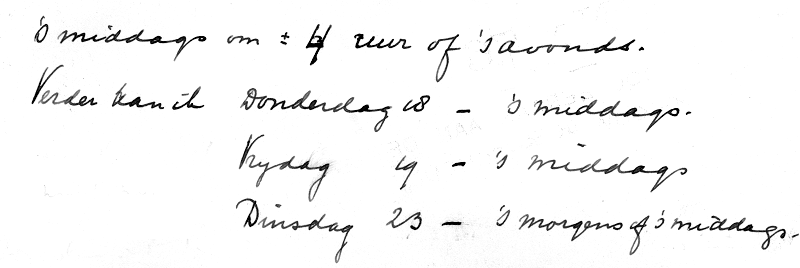 's middags om ± 4 uur of 's avonds.
Verder kan ik Donderdag 18 – 's middags.
Vrydag 19 – 's middags
Dinsdag 23 – 's morgens of 's middags.